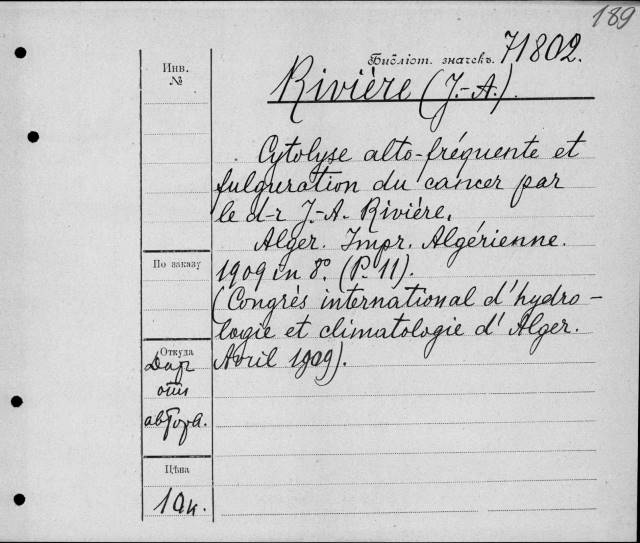 189
Библіот. значекъ. 71802.
Инв.
№
Rivière (J.-A.).
Cytolyse alto-fréquente et
fulguration du cancer par
le d-r J.-A. Rivière.
Alger. Impr. Algérienne.
По заказу
1909 in 8º. (P. 11).
(Congrès international d'hydro-
logie et climatologie d'Alger.
Avril 1909).
Откуда
Дар
от
автора.
Цѣна
10к.